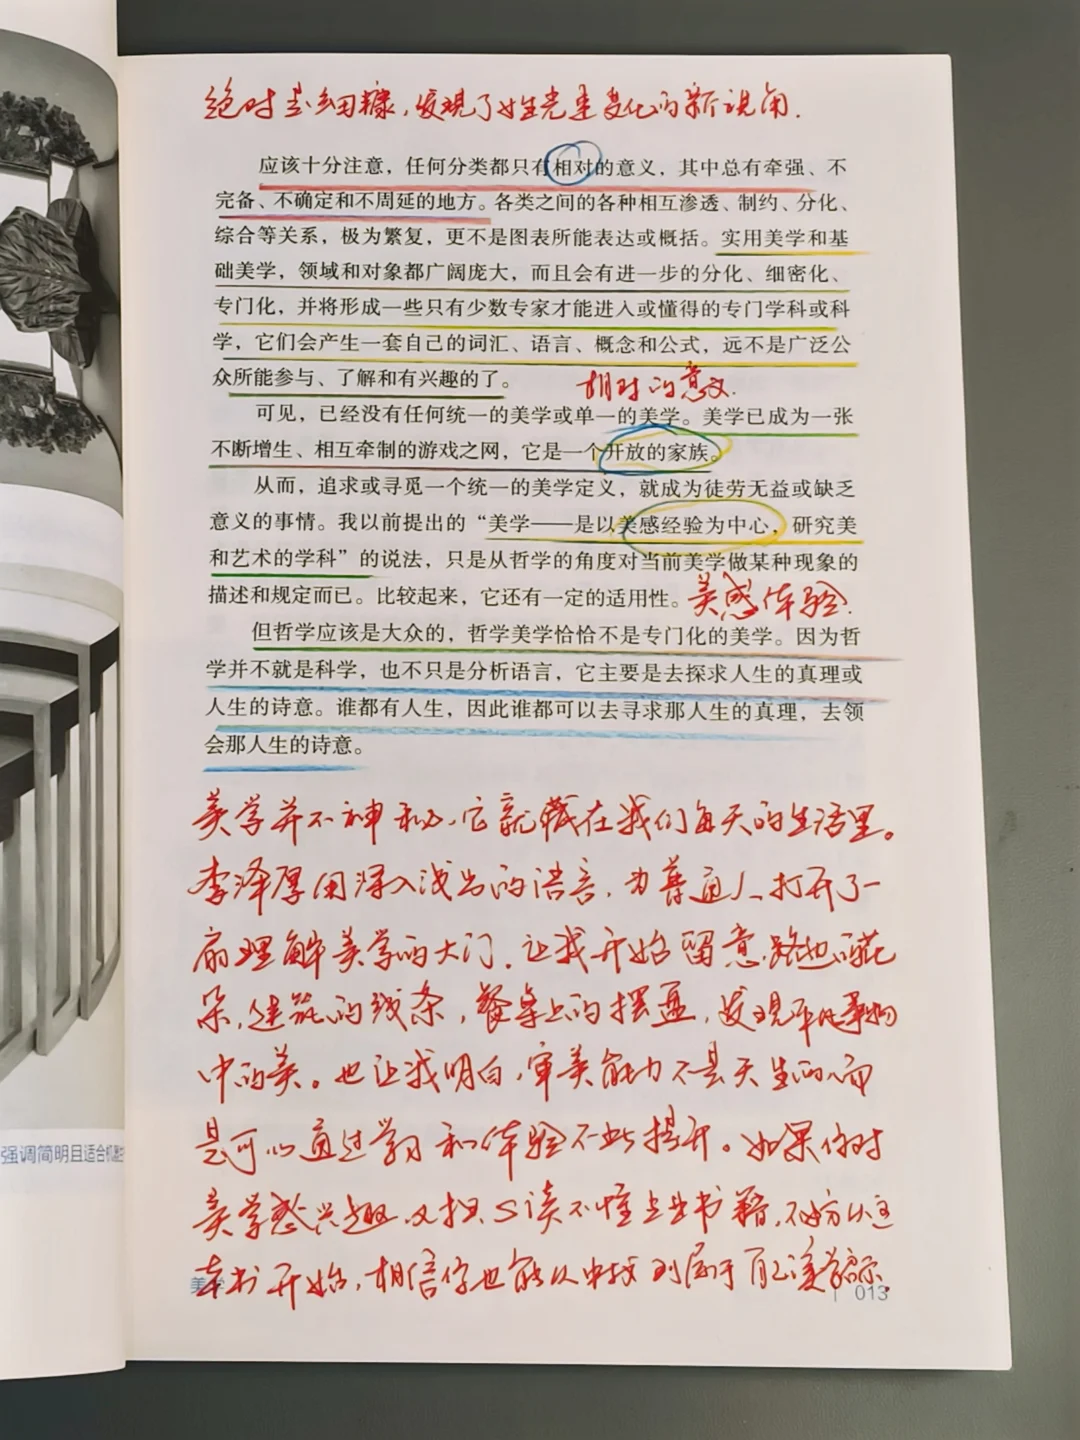 发现了
的新视角.
应该十分注意，任何分类都只有相对的意义，其中总有牵强、不
完备、不确定和不周延的地方。各类之间的各种相互渗透、制约、分化、
综合等关系，极为繁复，更不是图表所能表达或概括。实用美学和基
础美学，领域和对象都广阔庞大，而且会有进一步的分化、细密化、
专门化，并将形成一些只有少数专家才能进入或懂得的专门学科或科
学，它们会产生一套自己的词汇、语言、概念和公式，远不是广泛公
众所能参与、了解和有兴趣的了。
相对的意义.
可见，已经没有任何统一的美学或单一的美学。美学已成为一张
不断增生、相互牵制的游戏之网，它是一个开放的家族。
从而，追求或寻觅一个统一的美学定义，就成为徒劳无益或缺乏
意义的事情。我以前提出的“美学——是以美感经验为中心，研究美
和艺术的学科”的说法，只是从哲学的角度对当前美学做某种现象的
描述和规定而已。比较起来，它还有一定的适用性。
美感体验.
但哲学应该是大众的，哲学美学恰恰不是专门化的美学。因为哲
学并不就是科学，也不只是分析语言，它主要是去探求人生的真理或
人生的诗意。谁都有人生，因此谁都可以去寻求那人生的真理，去领
会那人生的诗意。
美学并不神秘，它就藏在我们每天的生活里。
李泽厚用深入浅出的语言，为普通人打开了一
扇理解美学的大门，让我开始留意路边的花
朵，建筑的线条，餐桌上的摆盘，发现平凡事物
中的美。也让我明白，审美能力不是天生的，而
是可以通过学习和体验不断提升。如果你对
美学感兴趣，又担心读不懂专业书籍，不妨从这
本书开始，相信你也能从中找到属于自己的美学启示。
强调简明且适合机器生
美学
013